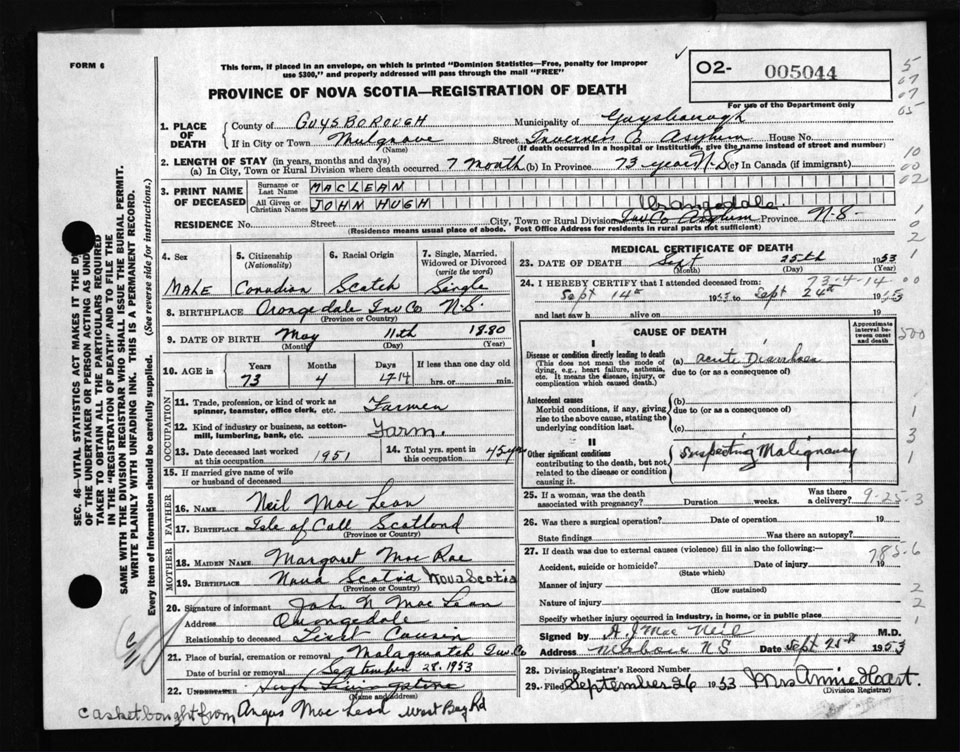 FORM 6
This form, if placed in an envelope, on which is printed "Dominion Statistics—Free, penalty for improper
use $300," and properly addressed will pass through the mail "FREE"
PROVINCE OF NOVA SCOTIA—REGISTRATION OF DEATH
O2- 005044
For use of the Department only
5
07
07
05
1. PLACE OF DEATH
County of GUYSBOROUGH Municipality of Guysborough
If in City or Town Mulgrave Street Inverness Co Asylum House No.
(Name) (If death occurred in a hospital or institution, give the name instead of street and number)
2. LENGTH OF STAY (in years, months and days)
(a) In City, Town or Rural Division where death occurred 7 Month (b) In Province 73 years N.S (c) In Canada (if immigrant)
10
00
02
3. PRINT NAME OF DECEASED
Surname or Last Name MACLEAN
All Given or Christian Names JOHN HUGH
Orangedale
RESIDENCE No. Street City, Town or Rural Division Inv Co Asylum Province N-S-
(Residence means usual place of abode. Post Office Address for residents in rural parts not sufficient)
1
0
2
1
4. Sex 5. Citizenship (Nationality) 6. Racial Origin 7. Single, Married, Widowed or Divorced (write the word)
MALE Canadian Scotch Single
8. BIRTHPLACE Orangedale Inv Co N.S.
(Province or Country)
9. DATE OF BIRTH May 11th 1880
(Month) (Day) (Year)
10. AGE in Years Months Days If less than one day old
73 4 14 hrs. or min.
OCCUPATION
11. Trade, profession, or kind of work as spinner, teamster, office clerk, etc. Farmer
12. Kind of industry or business, as cotton-mill, lumbering, bank, etc. Farm.
13. Date deceased last worked at this occupation 1951 14. Total yrs. spent in this occupation 45 yrs
15. If married give name of wife or husband of deceased
FATHER
16. NAME Neil Mac Lean
17. BIRTHPLACE Isle of Call Scotland
(Province or Country)
MOTHER
18. MAIDEN NAME Margaret Mac Rae
19. BIRTHPLACE Nova Scotia Nova Scotia
(Province or Country)
20. Signature of informant John N Mac Lean
Address Orangedale
Relationship to deceased First Cousin
21. Place of burial, cremation or removal Malagawatch Inv. Co
Date of burial or removal September 28. 1953
22. UNDERTAKER Hugh Livingstone
(Name and address)
casket bought from Angus Mac Lean West Bay Rd
MEDICAL CERTIFICATE OF DEATH
23. DATE OF DEATH Sept 25th 1953
(Month) (Day) (Year)
73-4-14
24. I HEREBY CERTIFY that I attended deceased from:
Sept 14th 1953 to Sept 24th 1953
and last saw h alive on 19
00
CAUSE OF DEATH
Approximate interval between onset and death
500
I
Disease or condition directly leading to death (a) acute Diarrhoea
(This does not mean the mode of dying, e.g., heart failure, asthenia, etc. It means the disease, injury, or complication which caused death.)
due to (or as a consequence of)
Antecedent causes
Morbid conditions, if any, giving rise to the above cause, stating the underlying condition last.
(b)
due to (or as a consequence of)
(c)
II
Other significant conditions contributing to the death, but not related to the disease or condition causing it.
Suspecting Malignancy
1
1
3
1
25. If a woman, was the death associated with pregnancy? Duration weeks. Was there a delivery?
9-25-3
26. Was there a surgical operation? Date of operation 19
State findings Was there an autopsy?
27. If death was due to external causes (violence) fill in also the following:—
785-6
Accident, suicide or homicide? Date of injury 19
(State which)
Manner of injury
(How sustained)
Nature of injury
Specify whether injury occurred in industry, in home, or in public place
2
2
1
Signed by A. J Mac Neil M.D.
Address Mabou NS Date Sept 25th 1953
28. Division Registrar's Record Number
29. Filed September 26 1953 Mrs Annie Hart.
(Division Registrar)
SEC. 46—VITAL STATISTICS ACT MAKES IT THE
OF THE UNDERTAKER OR PERSON ACTING AS
TAKER TO OBTAIN ALL THE PARTICULARS REQUIRED
IN THE "REGISTRATION OF DEATH" AND TO FILE THE
SAME WITH THE DIVISION REGISTRAR WHO SHALL ISSUE THE BURIAL PERMIT.
WRITE PLAINLY WITH UNFADING INK. THIS IS A PERMANENT RECORD.
Every item of Information should be carefully supplied. (See reverse side for instructions.)